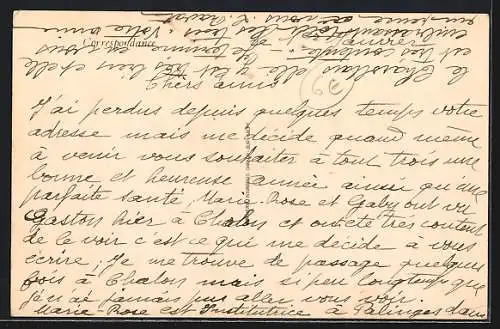 Correspondance
Chers amis
J'ai perdus depuis quelques temps votre
adresse mais me décide quand même
à venir vous souhaiter à tout trois une
bonne et heureuse année ainsi qu'une
parfaite santé, Marie-Rose et Gaby ont vu
Gaston hier à Chalon et ont été très content
de le voir c'est ce qui me décide à vous
écrire, Je me trouve de passage quelques
fois à Chalon mais si peu longtemps que
j'en ai jamais pus aller vous voir.
Marie-Rose est Institutrice à Palinges dans
le Charollais elle y est très bien et elle
est très contente. Je termine en vous
embrassant tous les trois. Votre amie